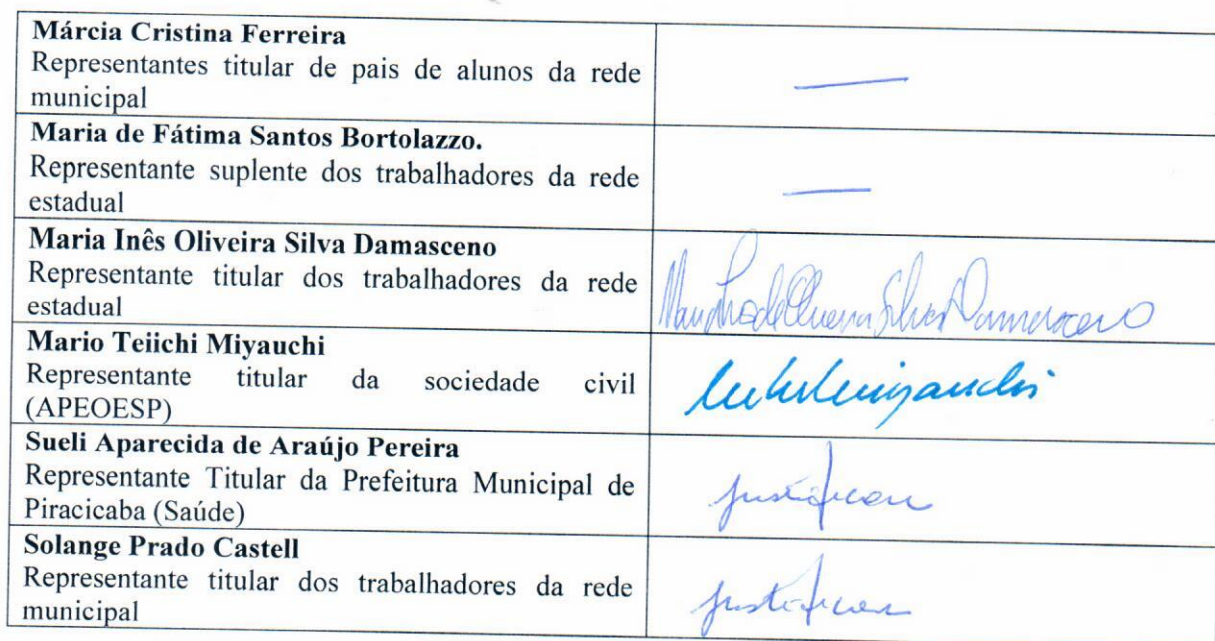 Márcia Cristina Ferreira
Representantes titular de pais de alunos da rede
municipal
Maria de Fátima Santos Bortolazzo.
Representante suplente dos trabalhadores da rede
estadual
Maria Inês Oliveira Silva Damasceno
Representante titular dos trabalhadores da rede
estadual
Mario Teiichi Miyauchi
Representante titular da sociedade civil
(APEOESP)
Sueli Aparecida de Araújo Pereira
Representante Titular da Prefeitura Municipal de
Piracicaba (Saúde)
justificou
Solange Prado Castell
Representante titular dos trabalhadores da rede
municipal
justificou